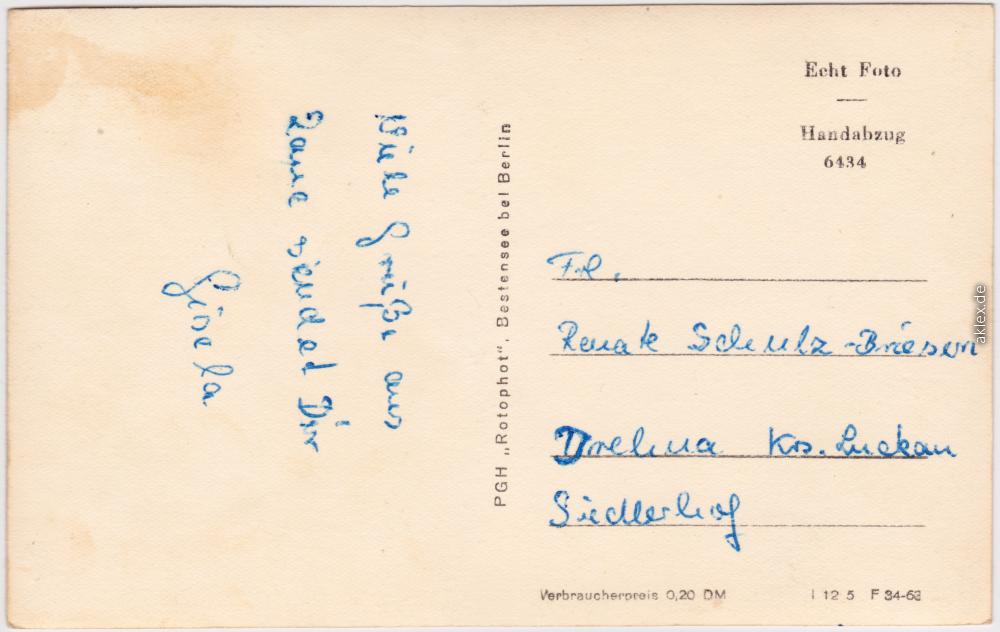 Viele Grüße aus
Rane sendet Dir
Gisela
PGH „Rotophot“, Bestensee bei Berlin
Echt Foto
Handabzug
6434
Frl.
Renate Schulz-Briesen
Drehna Krs. Luckau
Siedlerhof
Verbraucherpreis 0,20 DM
I 12 5 F 34-63
aklex.de